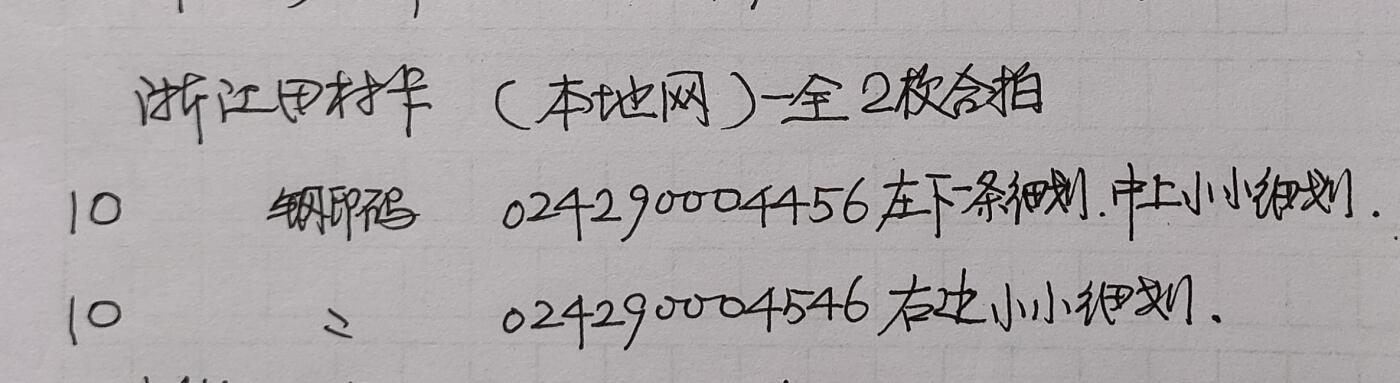 浙江田村卡 (本地网)一全2枚合拍
10 钢印码 024290004456 左下一条细划.中上小小细划.
10 〃 024290004546 右边小小细划.